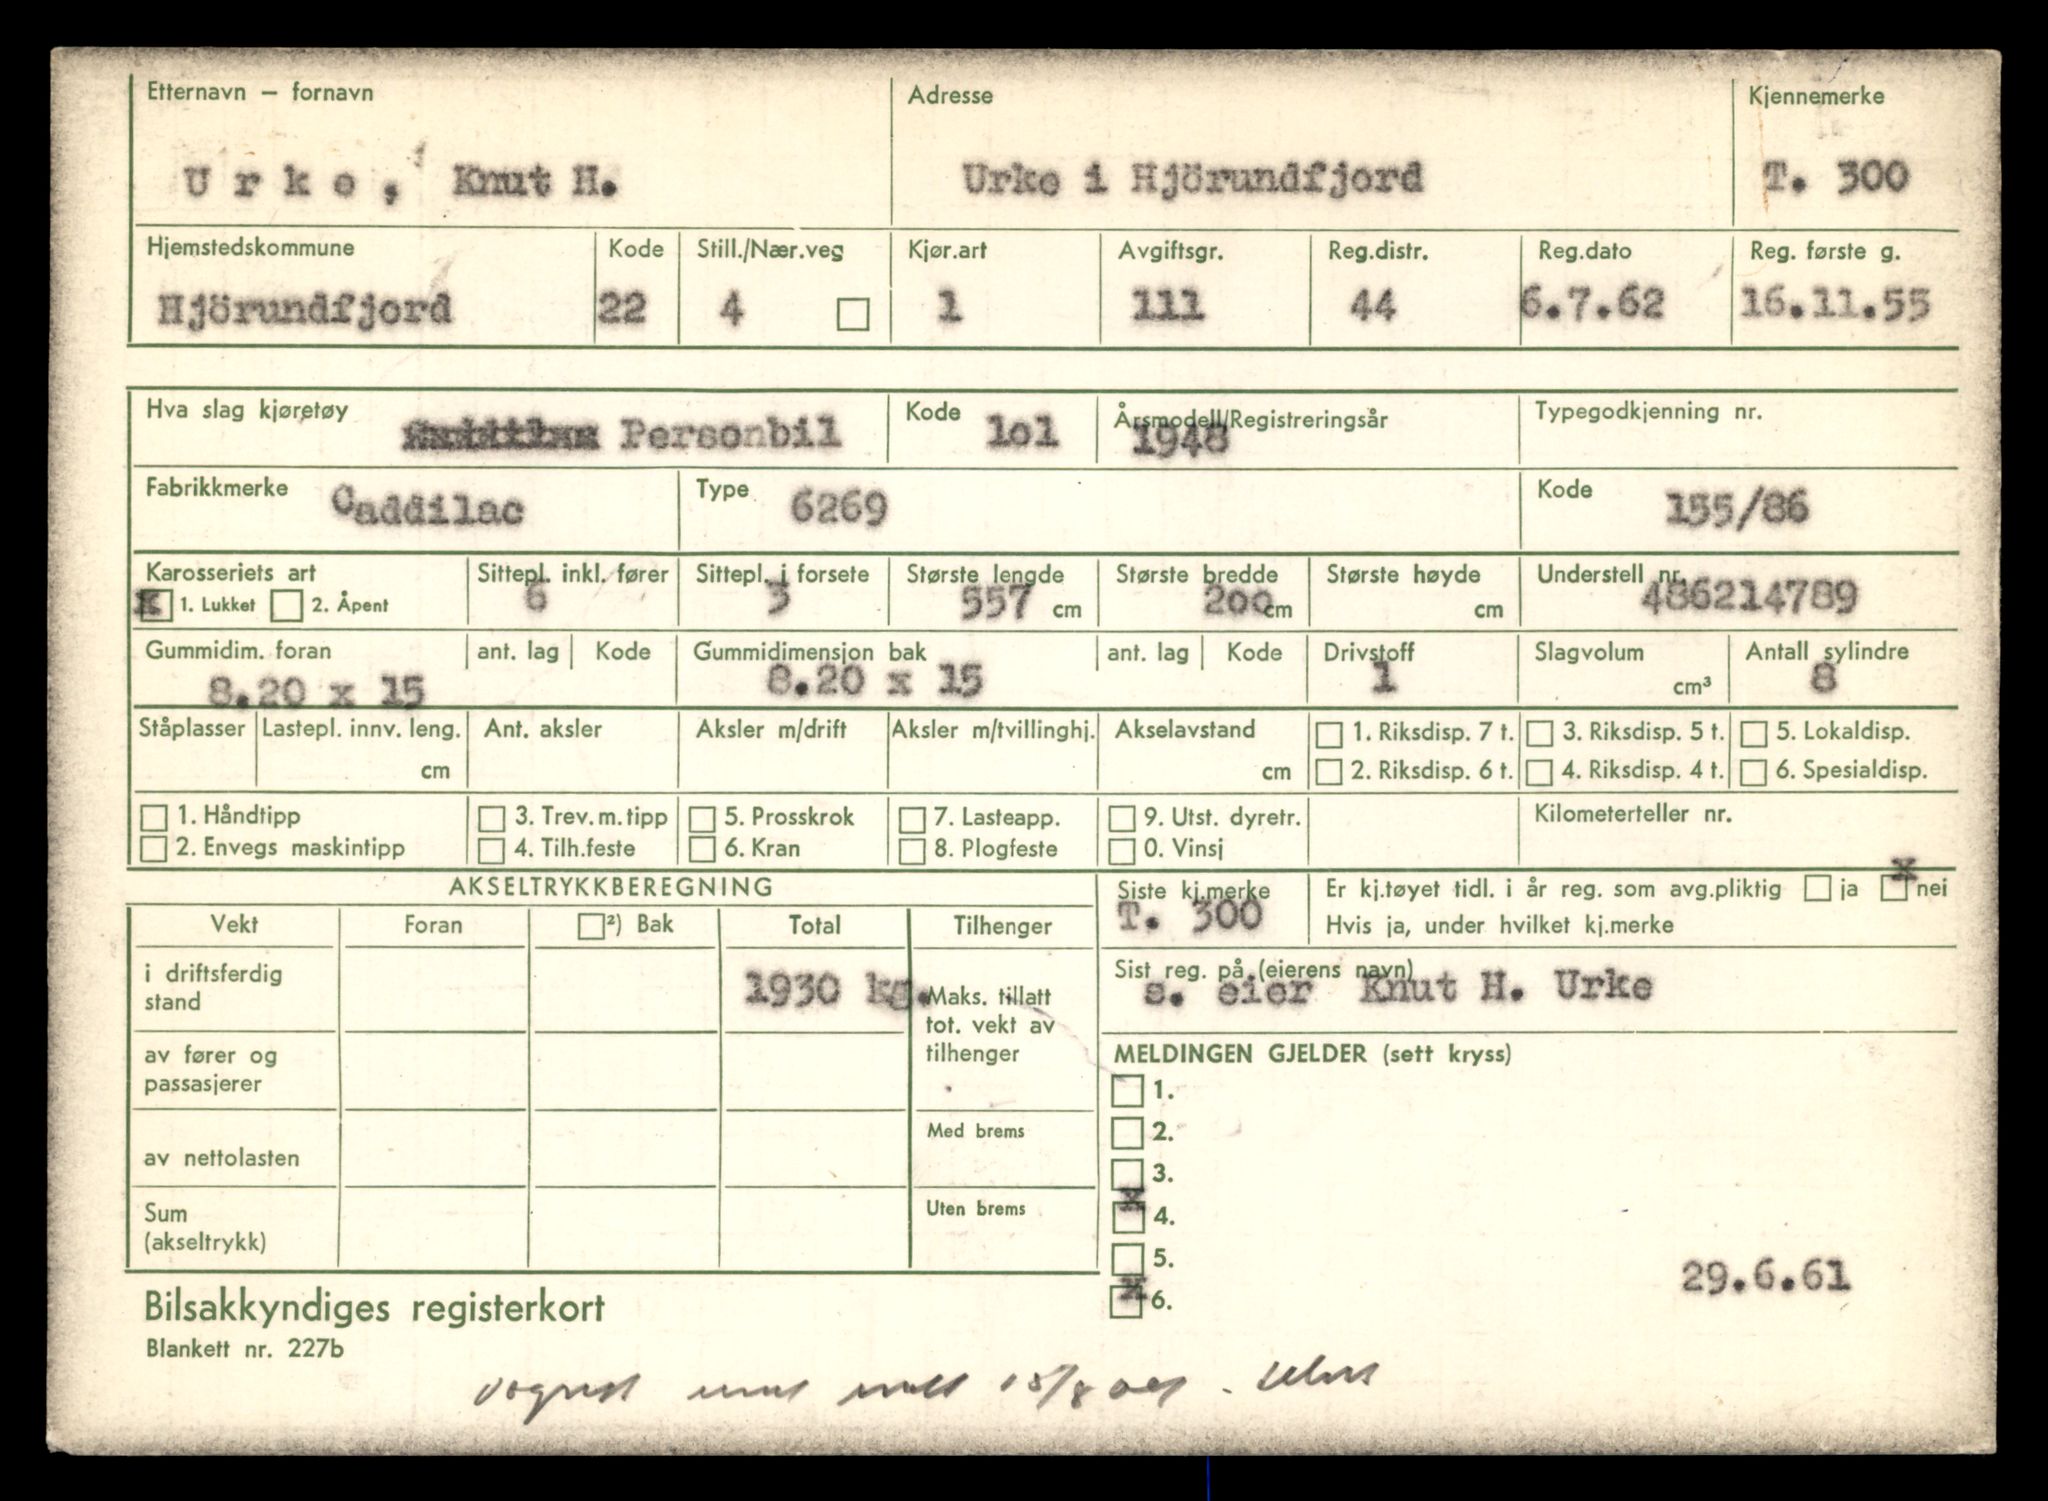 Etternavn – fornavn Adresse Kjennemerke
Urke, Knut H. Urke i Hjörundfjord T. 300
Hjemstedskommune Kode Still./Nær.veg Kjør.art Avgiftsgr. Reg.distr. Reg.dato Reg. første g.
Hjörundfjord 22 4 1 111 44 6.7.62 16.11.55
Hva slag kjøretøy Personbil Kode 1o1 Årsmodell/Registreringsår 1948 Typegodkjenning nr.
Fabrikkmerke Caddilac Type 6269 Kode 155/86
Karosseriets art Sittepl. inkl. fører Sittepl. i forsete Største lengde Største bredde Største høyde Understell nr.
x 1. Lukket 2. Åpent 6 3 557 cm 2oo cm cm 486214789
Gummidim. foran ant. lag Kode Gummidimensjon bak ant. lag Kode Drivstoff Slagvolum Antall sylindre
8.20 x 15 8.20 x 15 1 cm³ 8
Ståplasser Lastepl. innv. leng. Ant. aksler Aksler m/drift Aksler m/tvillinghj. Akselavstand 1. Riksdisp. 7 t. 3. Riksdisp. 5 t. 5. Lokaldisp.
cm cm 2. Riksdisp. 6 t. 4. Riksdisp. 4 t. 6. Spesialdisp.
1. Håndtipp 3. Trev. m. tipp 5. Prosskrok 7. Lasteapp. 9. Utst. dyretr. Kilometerteller nr.
2. Envegs maskintipp 4. Tilh.feste 6. Kran 8. Plogfeste 0. Vinsj
AKSELTRYKKBEREGNING Siste kj.merke Er kj.tøyet tidl. i år reg. som avg.pliktig ja x nei
Vekt Foran ²) Bak Total Tilhenger T. 300 Hvis ja, under hvilket kj.merke
i driftsferdig stand 1930 kg. Maks. tillatt tot. vekt av tilhenger
Sist reg. på (eierens navn)
s. eier Knut H. Urke
av fører og passasjerer
MELDINGEN GJELDER (sett kryss)
1.
av nettolasten Med brems 2.
3.
Sum (akseltrykk) Uten brems x 4.
5.
x 6. 29.6.61
Bilsakkyndiges registerkort
Blankett nr. 227b